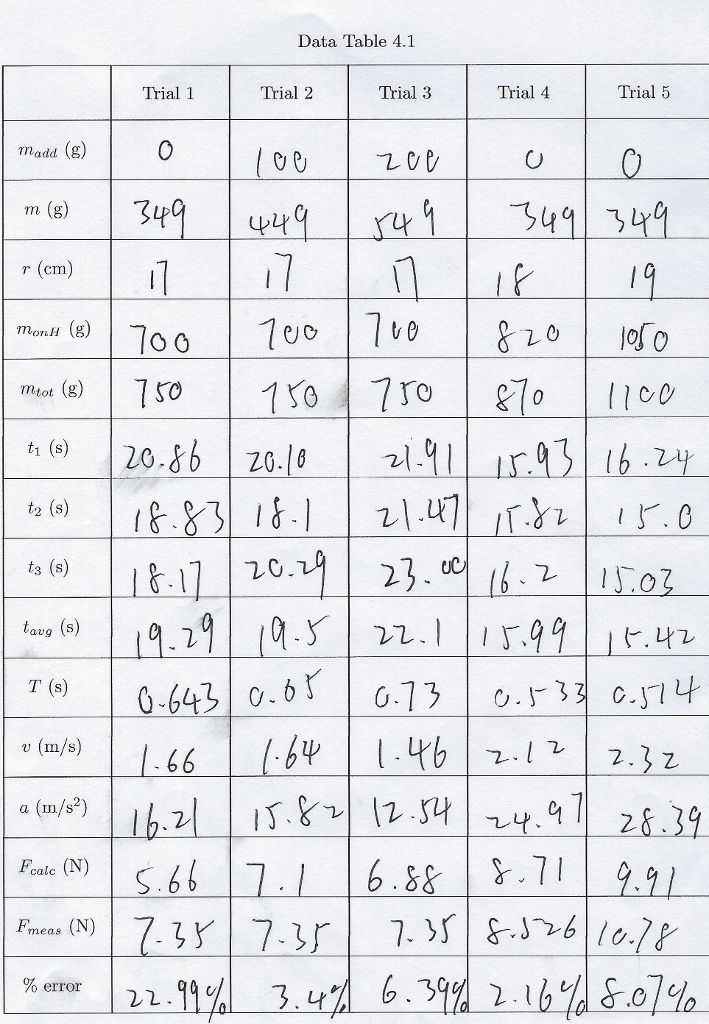 Data Table 4.1
Trial 1 Trial 2 Trial 3 Trial 4 Trial 5
m_add (g) 0 100 200 0 0
m (g) 349 449 549 349 349
r (cm) 17 17 17 18 19
m_onH (g) 700 700 700 820 1050
m_tot (g) 750 750 750 870 1100
t₁ (s) 20.86 20.10 21.91 15.93 16.24
t₂ (s) 18.83 18.1 21.47 15.82 15.0
t₃ (s) 18.17 20.29 23.00 16.2 15.03
t_avg (s) 19.29 19.5 22.1 15.99 15.42
T (s) 0.643 0.65 0.73 0.533 0.514
v (m/s) 1.66 1.64 1.46 2.12 2.32
a (m/s²) 16.21 15.82 12.54 24.97 28.39
F_calc (N) 5.66 7.1 6.88 8.71 9.91
F_meas (N) 7.35 7.35 7.35 8.526 10.78
% error 22.99% 3.4% 6.39% 2.16% 8.07%